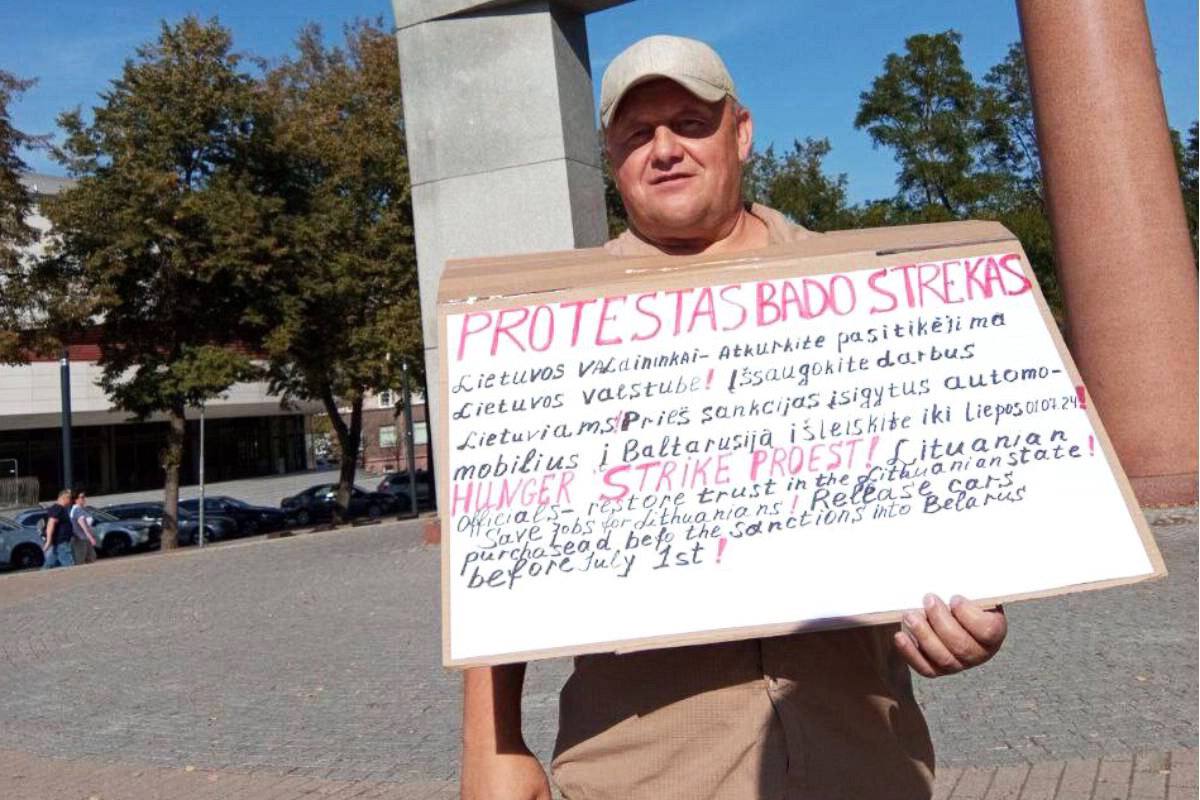 PROTESTAS BADO STREKAS
Lietuvos VALdininkai- Atkurkite pasitikėjima
Lietuvos valstube! Išsaugokite darbus
Lietuviams! Prieš sankcijas įsigytus automo-
mobilius į Baltarusiją išleiskite iki liepos 01.07.24!
HUNGER STRIKE PROEST! Lithuanian
Officials- restore trust in the Lithuanian state!
Save jobs for Lithuanians! Release cars
purchasead befo the sanctions into Belarus
before July 1st!